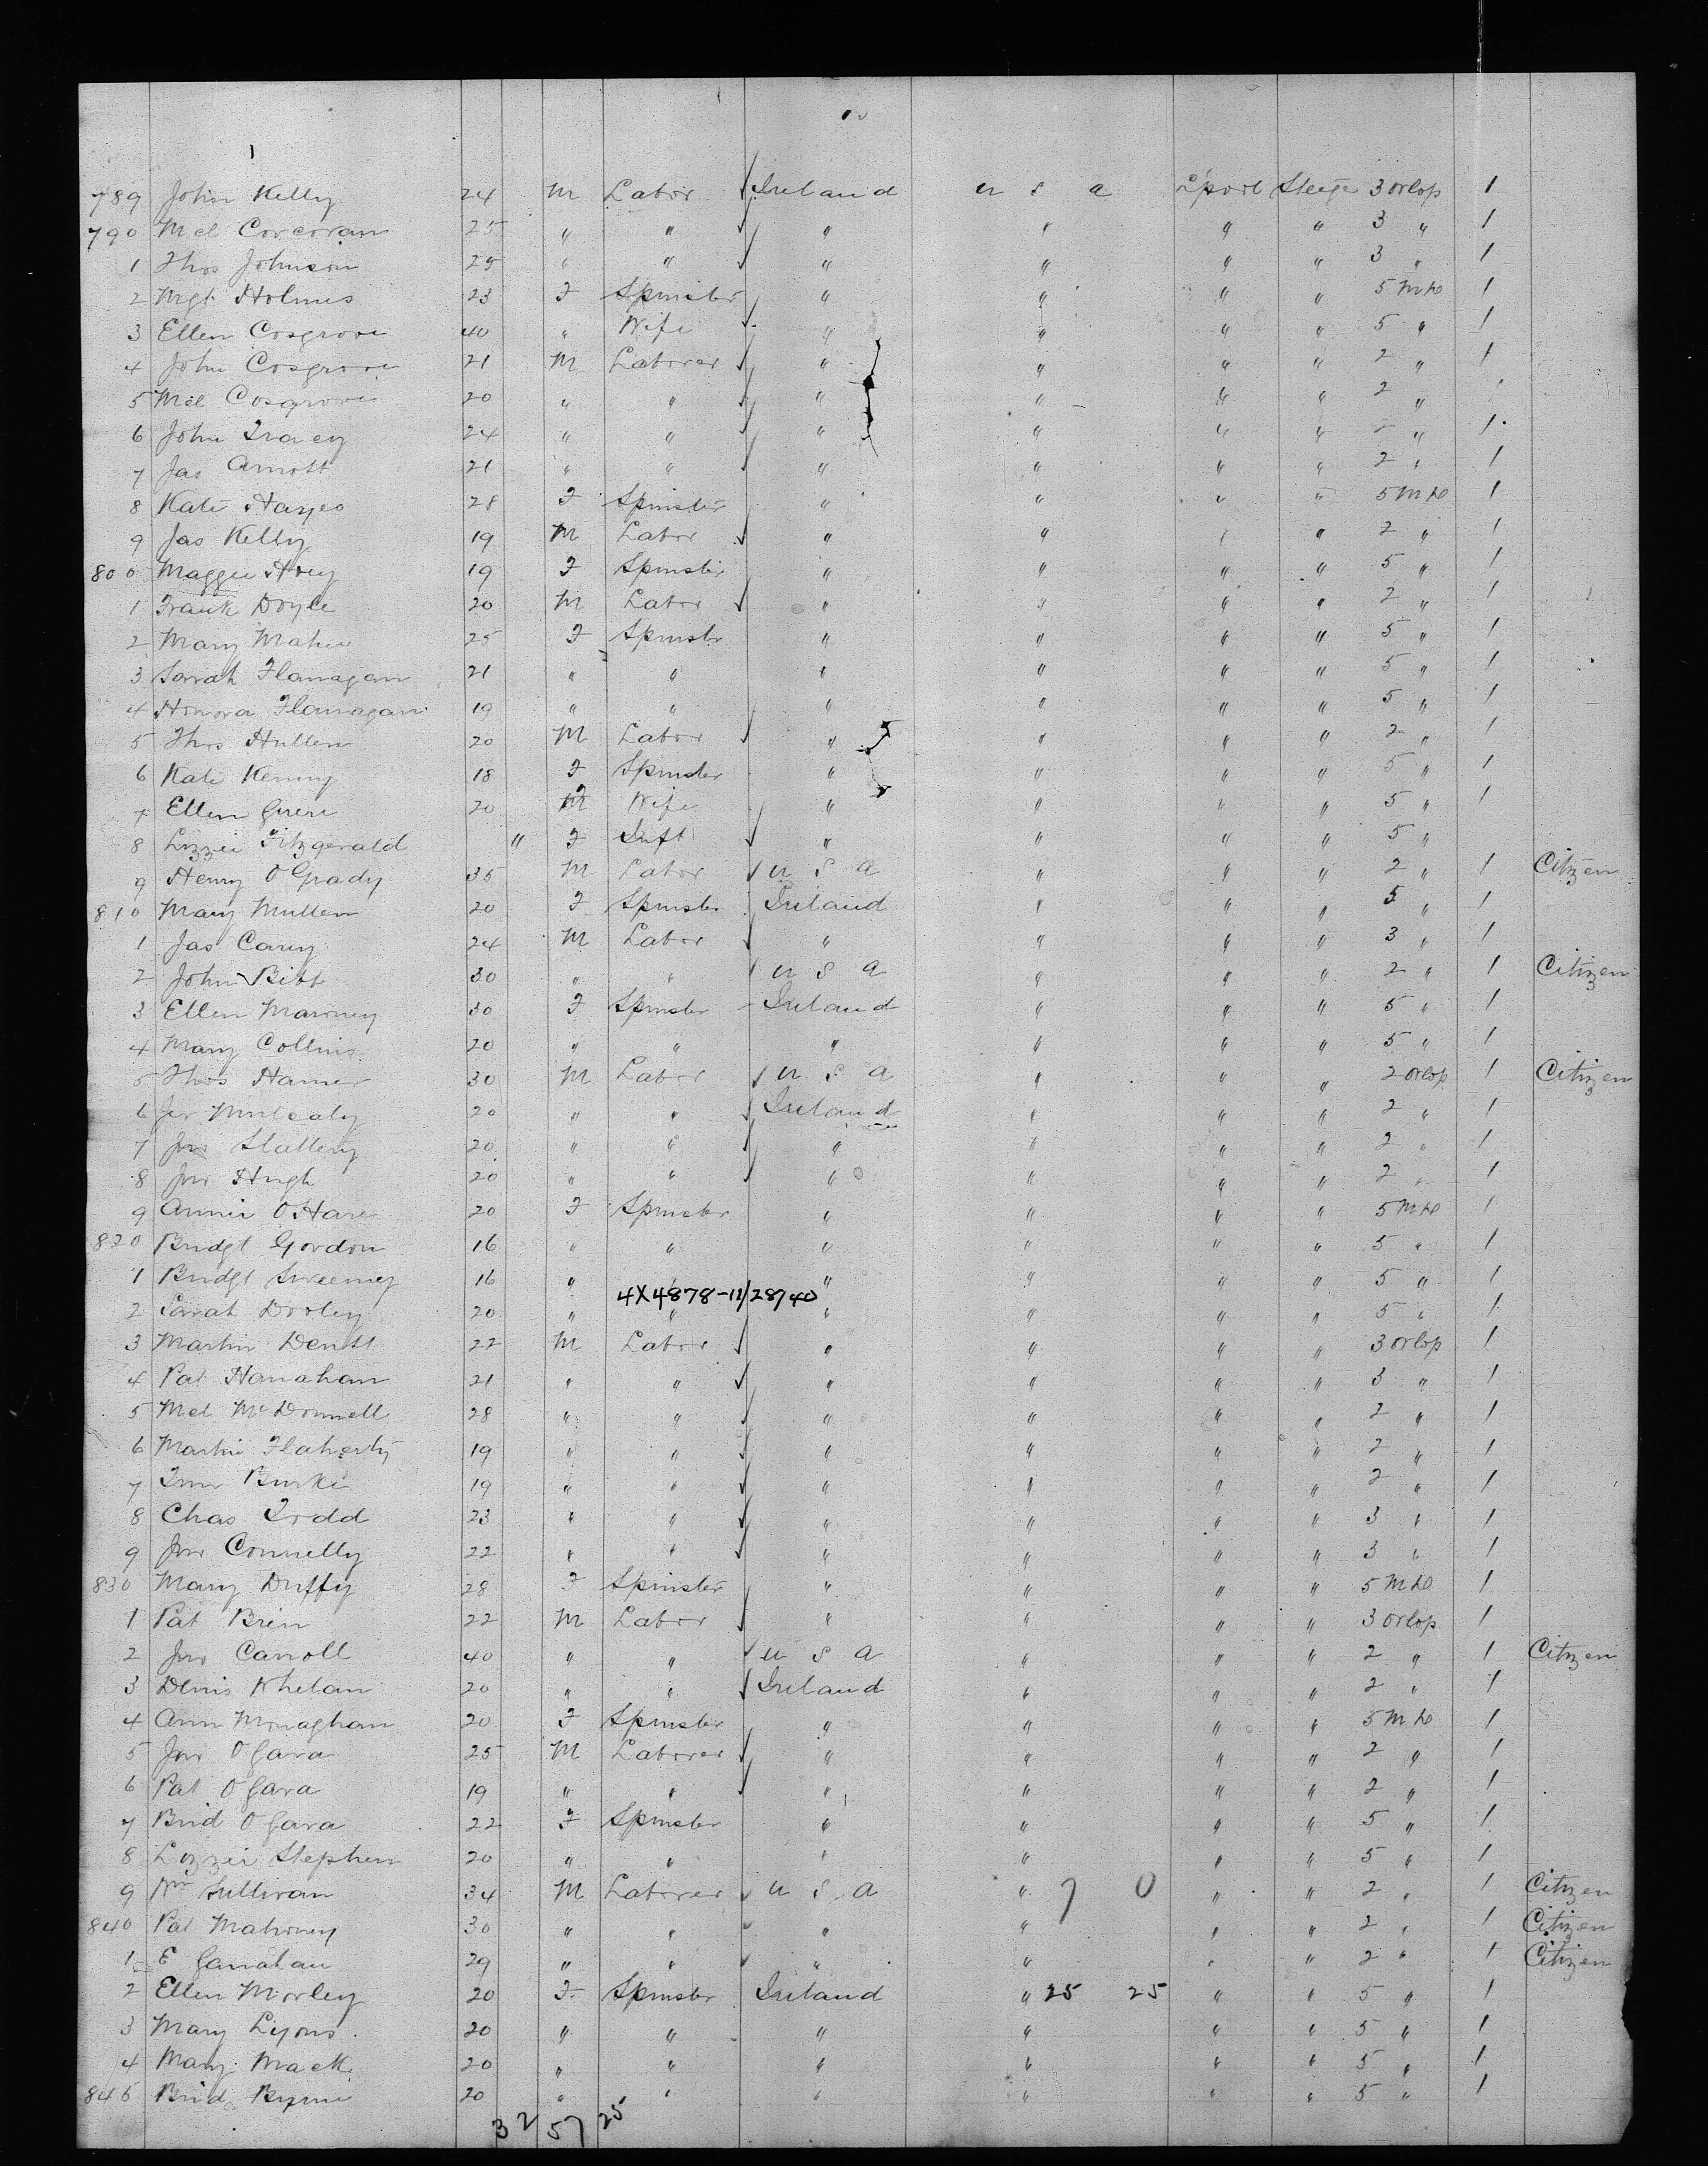 789 John Kelly 24 M Labor Ireland U S A L'pool Steege 3 orlop 1
790 Mcl Corcoran 25 " " " " " " 3 " 1
1 Thos Johnson 25 " " " " " " 3 " 1
2 Mgt Holmes 23 F Spinster " " " " 5 1
3 Ellen Cosgrove 40 " Wife " " " " 5 " 1
4 John Cosgrove 21 M Laborer " " " " 2 " 1
5 Mcl Cosgrove 20 " " " " " " 2 "
6 John Tracey 24 " " " " " " 2 " 1
7 Jas Arnott 21 " " " " " " 2 " 1
8 Kate Hayes 28 F Spinster " " " " 5 1
9 Jas Kelly 19 M Labor " " " " 2 " 1
800 Maggie Hoey 19 F Spinster " " " " 5 " 1
1 Frank Doyle 20 M Labor " " " " 2 " 1
2 Mary Maher 25 F Spinstr " " " " 5 " 1
3 Sarah Flanagan 21 " " " " " " 5 " 1
4 Honora Flanagan 19 " " " " " " 5 " 1
5 Thos Hullen 20 M Labor " " " " 2 " 1
6 Kate Kenny 18 F Spinster " " " " 5 " 1
7 Ellen 20 F Wife " " " " 5 " 1
8 Lizzie Fitzgerald " F Inft " " " " 5 "
9 Henry O'Grady 35 M Labor U S A " " " 2 " 1 Citizen
810 Mary Mullen 20 F Spinster Ireland " " " 5 " 1
1 Jas Carey 24 M Labor " " " " 3 " 1
2 John Bitt 30 " " U S A " " " 2 " 1 Citizen
3 Ellen Mawney 30 F Spinster Ireland " " " 5 " 1
4 Mary Collins 20 " " " " " " 5 " 1
5 Thos Hamer 30 M Labor U S A " " " 2 orlop 1 Citizen
6 Jer Mulcahy 20 " " Ireland " " " 2 " 1
7 Jno Slattery 20 " " " " " " 2 " 1
8 Jno Hugh 20 " " " " " " 2 " 1
9 Annie O'Hare 20 F Spinster " " " " 5 1
820 Bridgt Gordon 16 " " " " " " 5 " 1
1 Bridgt Sweeney 16 " " " " " " 5 " 1
4X4878-11/28/40
2 Sarah Dooley 20 " " " " " " 5 " 1
3 Martin Dentt 22 M Labor " " " " 3 orlop 1
4 Pat Hanahan 21 " " " " " " 3 " 1
5 Mcl McDonnell 28 " " " " " " 2 " 1
6 Martin Flaherty 19 " " " " " " 2 " 1
7 Burke 19 " " " " " " 2 " 1
8 Chas Todd 23 " " " " " " 3 " 1
9 Jno Connelly 22 " " " " " " 3 " 1
830 Mary Duffy 28 F Spinster " " " " 5 1
1 Pat Brien 22 M Labor " " " " 3 orlop 1
2 Jno Carroll 40 " " U S A " " " 2 " 1 Citizen
3 Denis Whelan 20 " " Ireland " " " 2 " 1
4 Ann Monaghan 20 F Spinster " " " " 5 1
5 Jno O'Gara 25 M Laborer " " " " 2 " 1
6 Pat O'Gara 19 " " " " " " 2 " 1
7 Brid O'Gara 22 F Spinster " " " " 5 " 1
8 Lizzie Stephen 20 " " " " " " 5 " 1
9 Wm Sullivan 34 M Laborer U S A " 7 0 " " 2 " 1 Citizen
840 Pat Mahoney 30 " " " " " " 2 " 1 Citizen
1 E Ganahan 29 " " " " " " 2 " 1 Citizen
2 Ellen Morley 20 F Spinster Ireland " 25 25 " " 5 " 1
3 Mary Lyons 20 " " " " " " 5 " 1
4 Mary Mack 20 " " " " " " 5 " 1
845 Brid Byrne 20 " " " " " " 5 " 1
32/57/25